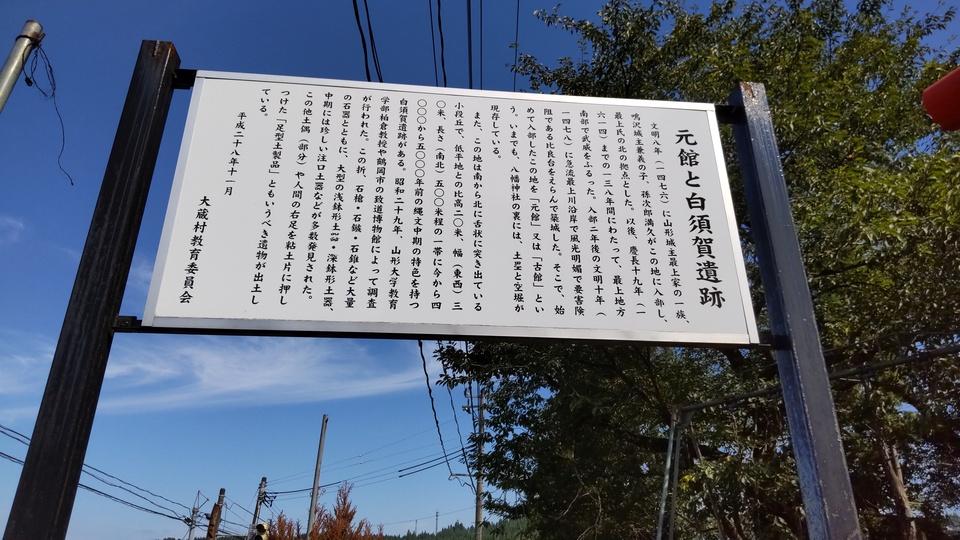 元館と白須賀遺跡
文明八年(一四七六)に山形城主最上家の一族、
鳴沢城主兼義の子、孫次郎満久がこの地に入部し、
最上氏の北の拠点とした。以後、慶長十九年(一
六一四)までの一三八年間にわたって、最上地方
南部で武威をふるった。入部二年後の文明十年(
一四七八)に急流最上川沿岸で風光明媚で要害険
阻である比良台をえらんで築城した。そこで、始
めて入部したこの地を「元館」又は「古館」とい
う。いまでも、八幡神社の裏には、土塁と空堀が
現存している。
また、この地は南から北に舌状に突き出ている
小段丘で、低平地との比高二〇米、幅(東西)三
〇米、長さ(南北)五〇〇米程の一帯に今から四
〇〇〇から五〇〇〇年前の縄文中期の特色を持つ
白須賀遺跡がある。昭和二十九年、山形大学教育
学部柏倉教授や鶴岡市の致道博物館によって調査
が行われた。この折、石槍・石鏃・石錐など大量
の石器とともに、大型の浅鉢形土器・深鉢形土器、
中期には珍しい注口土器などが多数発見された。
この他土偶(部分)や人間の右足を粘土片に押し
つけた「足型土製品」ともいうべき遺物が出土し
ている。
平成二十八年十一月
大蔵村教育委員会